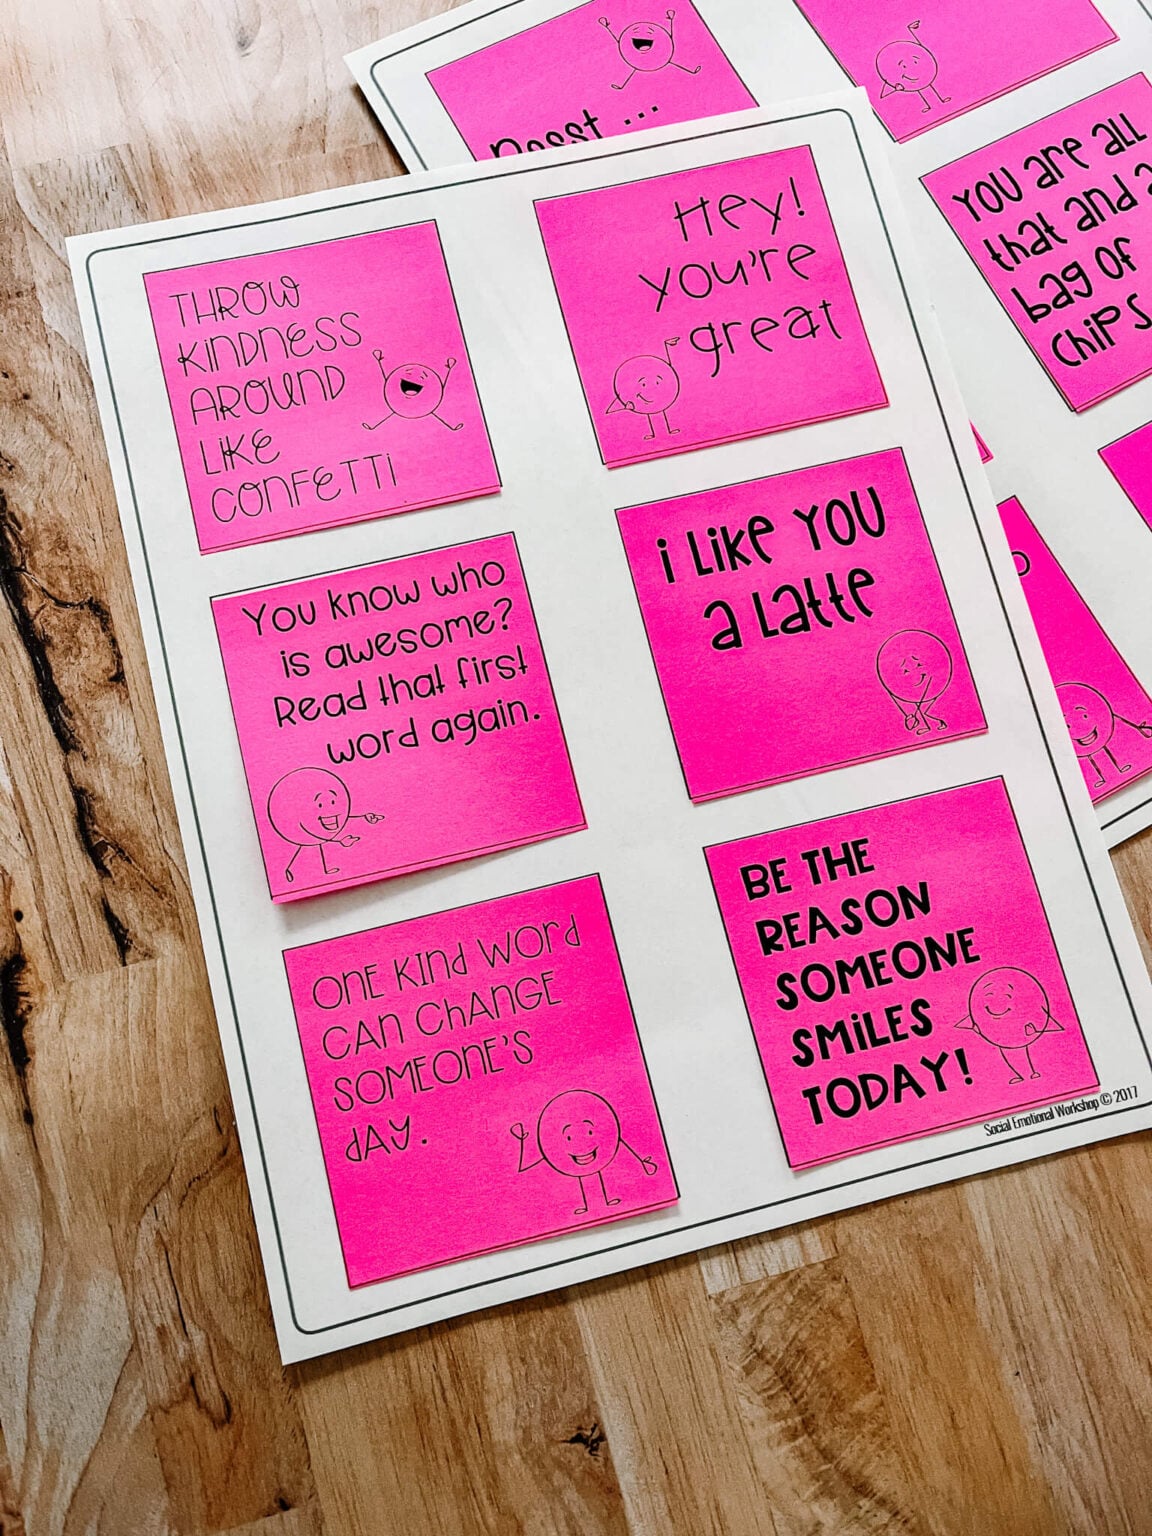 THROW
KINDNESS
AROUND
LIKE
CONFETTI
Hey!
you're
great
You know who
is awesome?
Read that first
word again.
i Like YOU
a Latte
ONE KIND WORD
CAN CHANGE
SOMEONE'S
DAY.
BE THE
REASON
SOMEONE
SMILES
TODAY!
Social Emotional Workshop © 2017
Pssst ...
YOU are all
that and a
bag of
chips